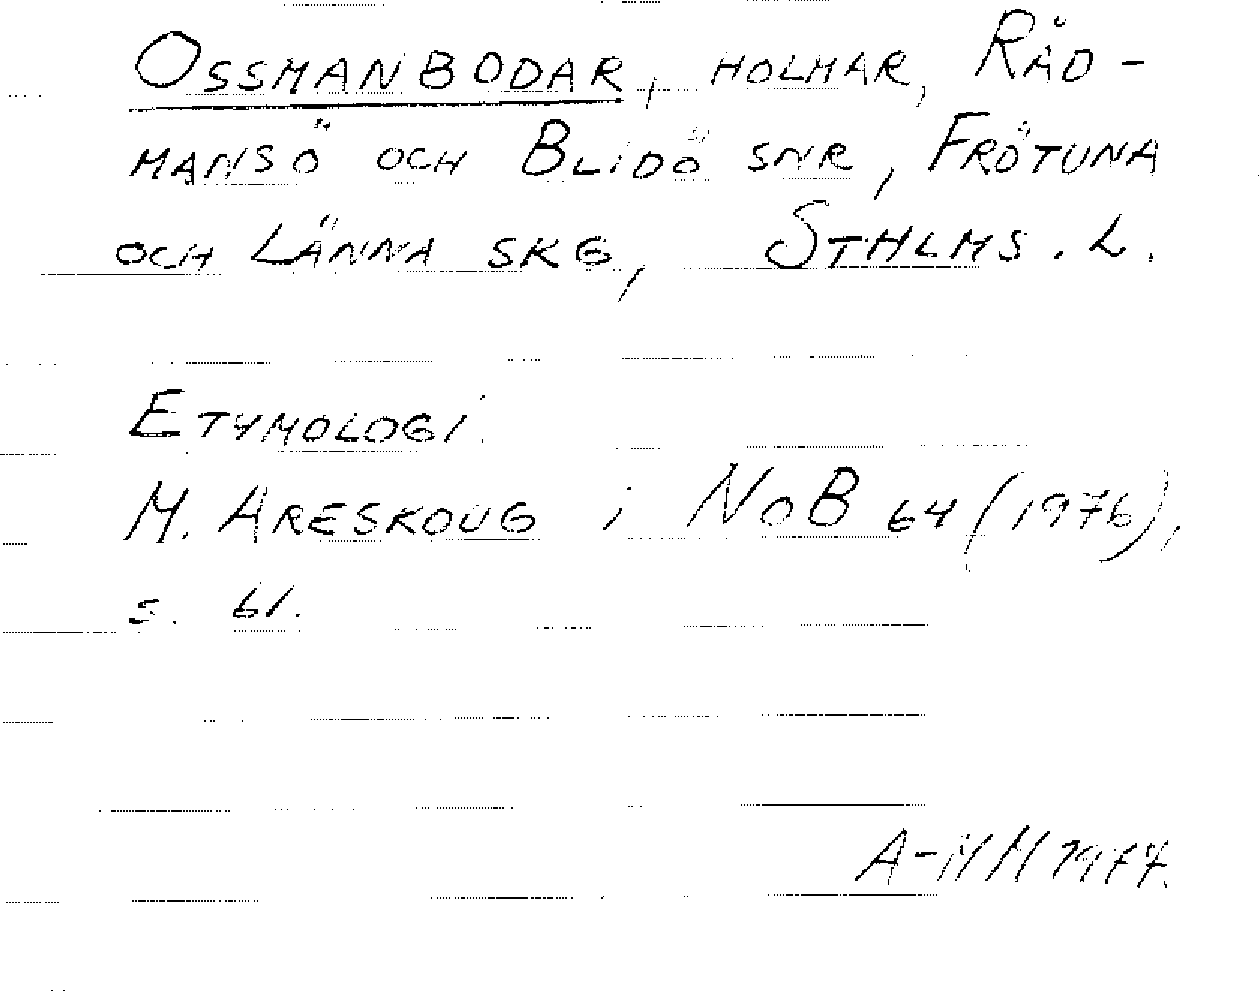 OSSMANBODAR, HOLMAR, RÅD-
MANSÖ OCH BLIDÖ SNR, FRÖTUNA
OCH LÄNNA SKG, STHLMS. L.
ETYMOLOGI.
M. ARESKOUG i NoB 64 (1976),
s. 61.
A-MM 1977.